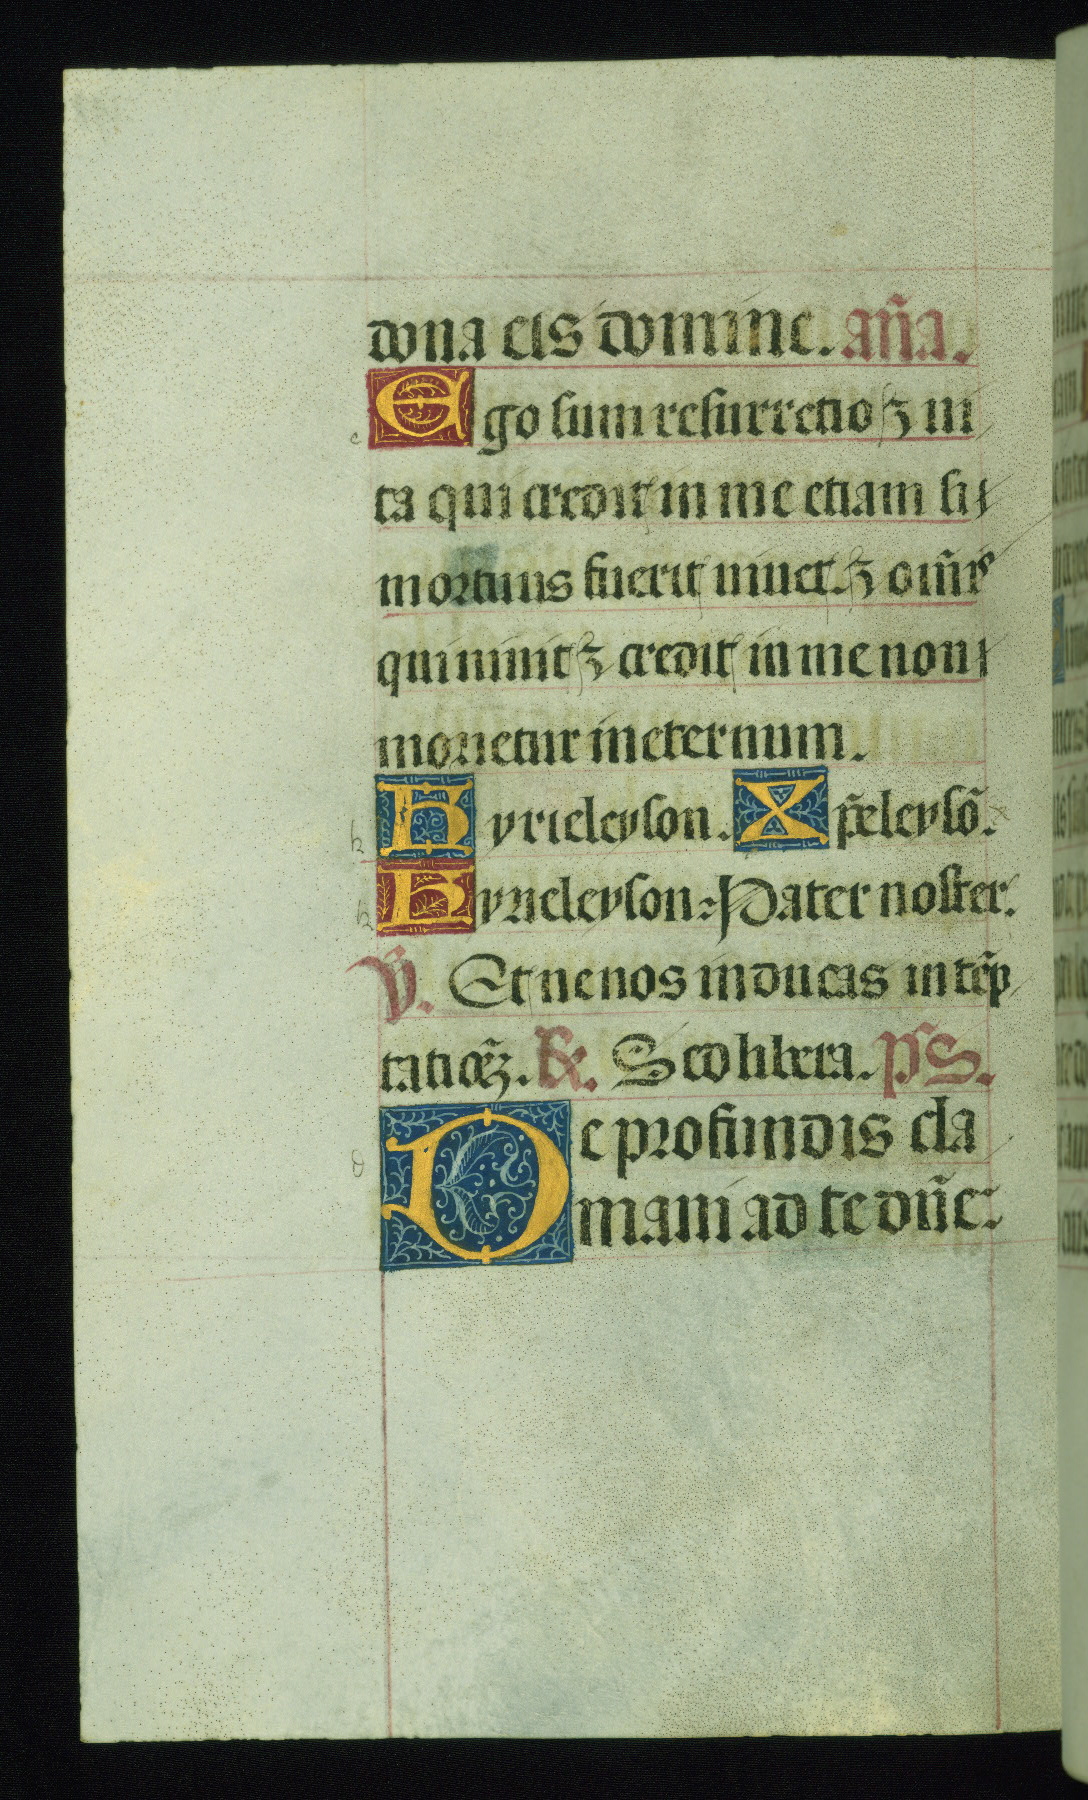 dona eis domine. aña.
Ego sum resurrectio ⁊ ui
ta qui credit in me etiam si
mortuus fuerit uiuet. ⁊ om̃is
qui uiuit ⁊ credit in me non
morietur in eternum.
Kyrieleyson. Xp̃eleysõ.
Kyrieleyson. Pater noster.
V̄. Et ne nos inducas in tẽp
tationẽ. R. Sed libera. ps.
De profundis cla
maui ad te dñe: